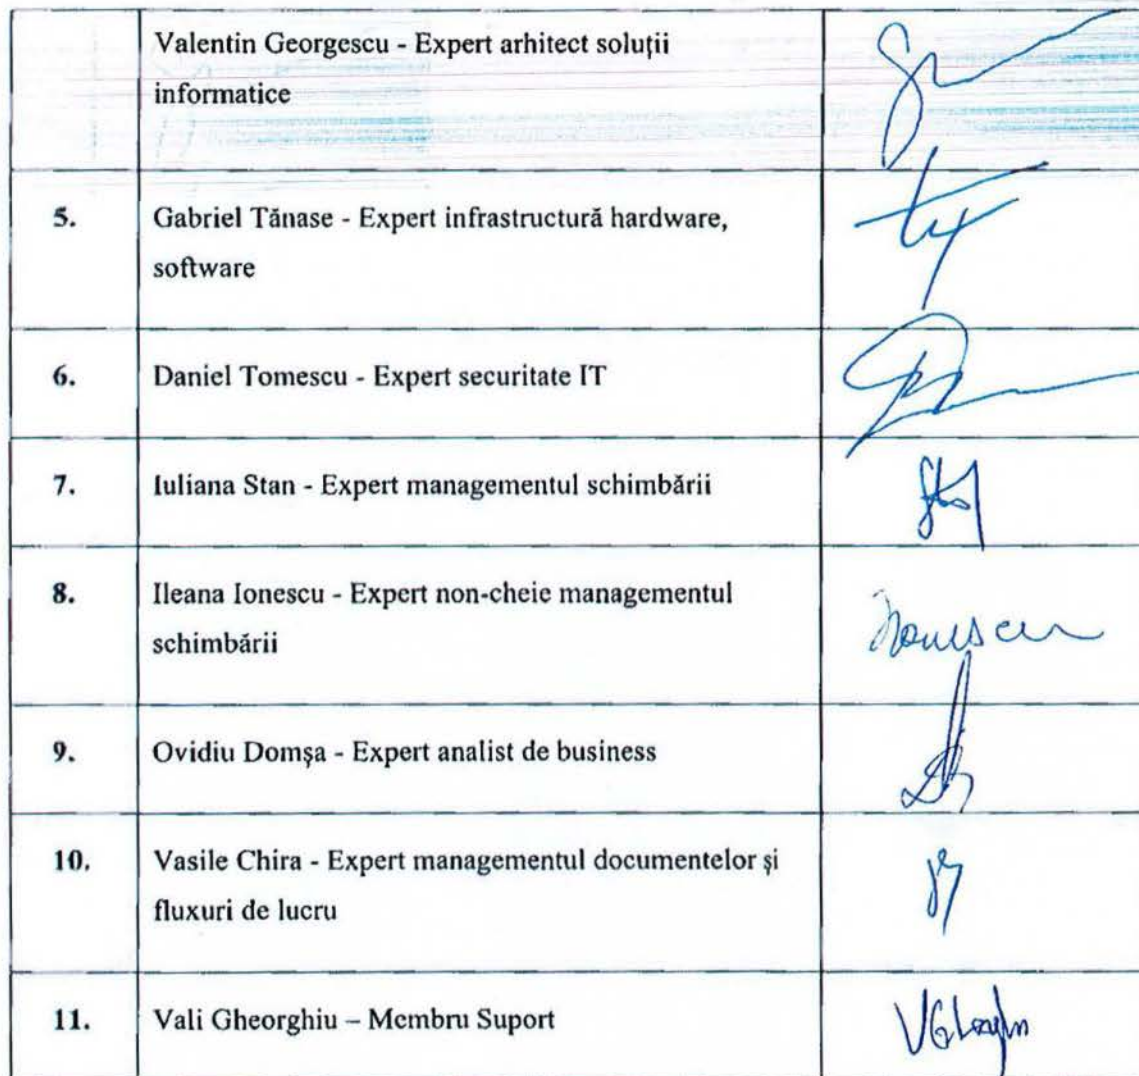 Valentin Georgescu - Expert arhitect soluții
informatice
5. Gabriel Tănase - Expert infrastructură hardware,
software
6. Daniel Tomescu - Expert securitate IT
7. Iuliana Stan - Expert managementul schimbării
8. Ileana Ionescu - Expert non-cheie managementul
schimbării
Ionescu
9. Ovidiu Domşa - Expert analist de business
10. Vasile Chira - Expert managementul documentelor şi
fluxuri de lucru
11. Vali Gheorghiu – Membru Suport